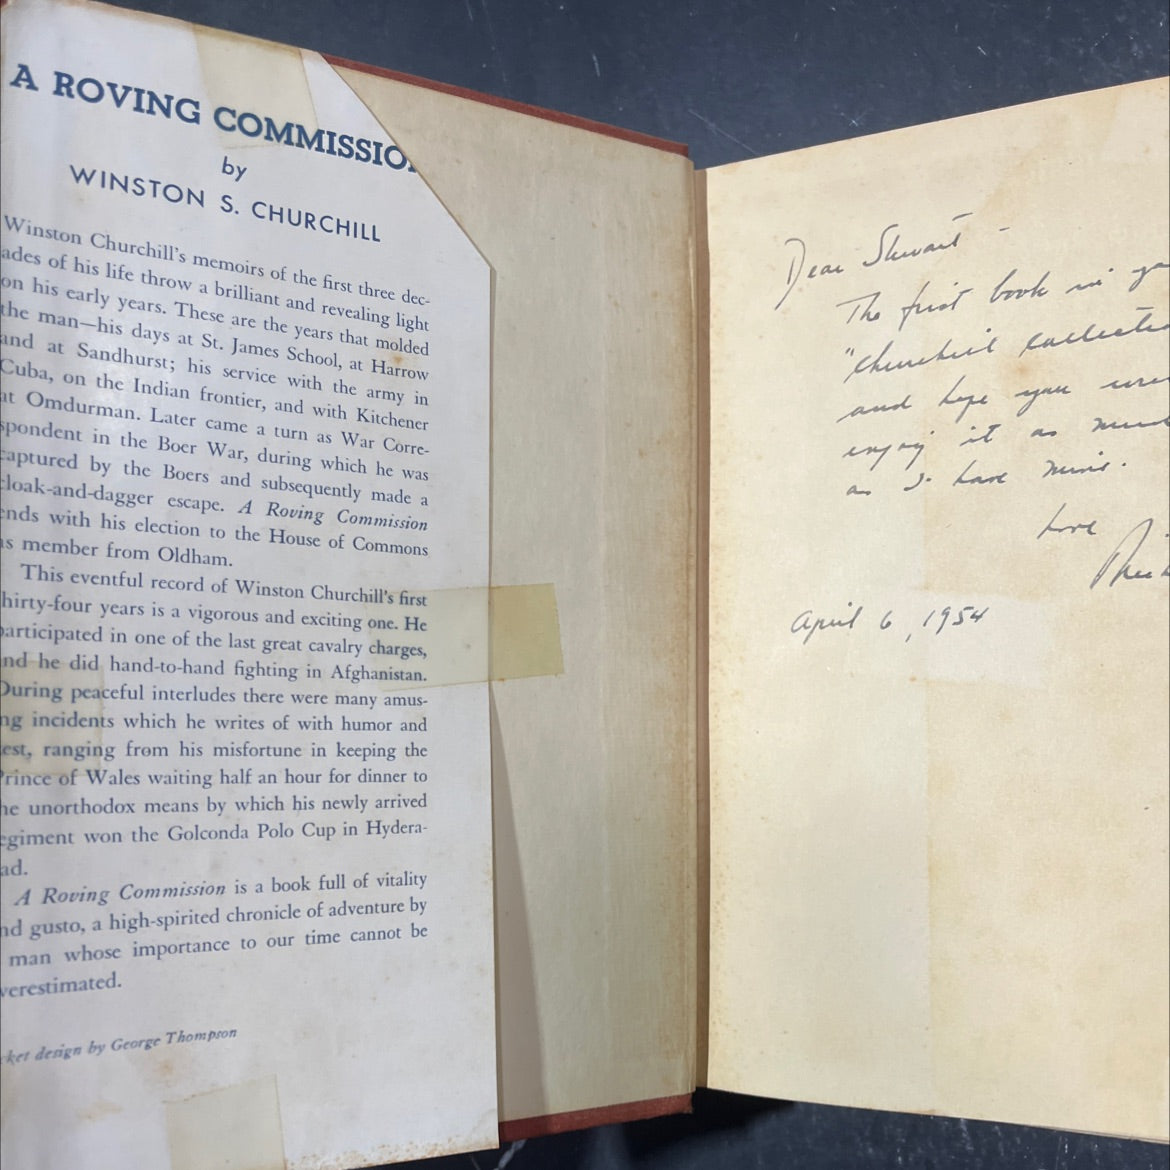 A ROVING COMMISSIO
by
WINSTON S. CHURCHILL
Winston Churchill's memoirs of the first three dec-
ades of his life throw a brilliant and revealing light
on his early years. These are the years that molded
the man—his days at St. James School, at Harrow
and at Sandhurst; his service with the army in
Cuba, on the Indian frontier, and with Kitchener
at Omdurman. Later came a turn as War Corre-
spondent in the Boer War, during which he was
captured by the Boers and subsequently made a
cloak-and-dagger escape. A Roving Commission
ends with his election to the House of Commons
as member from Oldham.
This eventful record of Winston Churchill's first
hirty-four years is a vigorous and exciting one. He
participated in one of the last great cavalry charges,
nd he did hand-to-hand fighting in Afghanistan.
During peaceful interludes there were many amus-
ng incidents which he writes of with humor and
est, ranging from his misfortune in keeping the
Prince of Wales waiting half an hour for dinner to
he unorthodox means by which his newly arrived
egiment won the Golconda Polo Cup in Hydera-
ad.
A Roving Commission is a book full of vitality
nd gusto, a high-spirited chronicle of adventure by
man whose importance to our time cannot be
verestimated.
cket design by George Thompson
Dear Stewart -
The first book in yo
"Churchill Collectio
and hope you
enjoy it as much
as I have mine.
Love
April 6, 1954